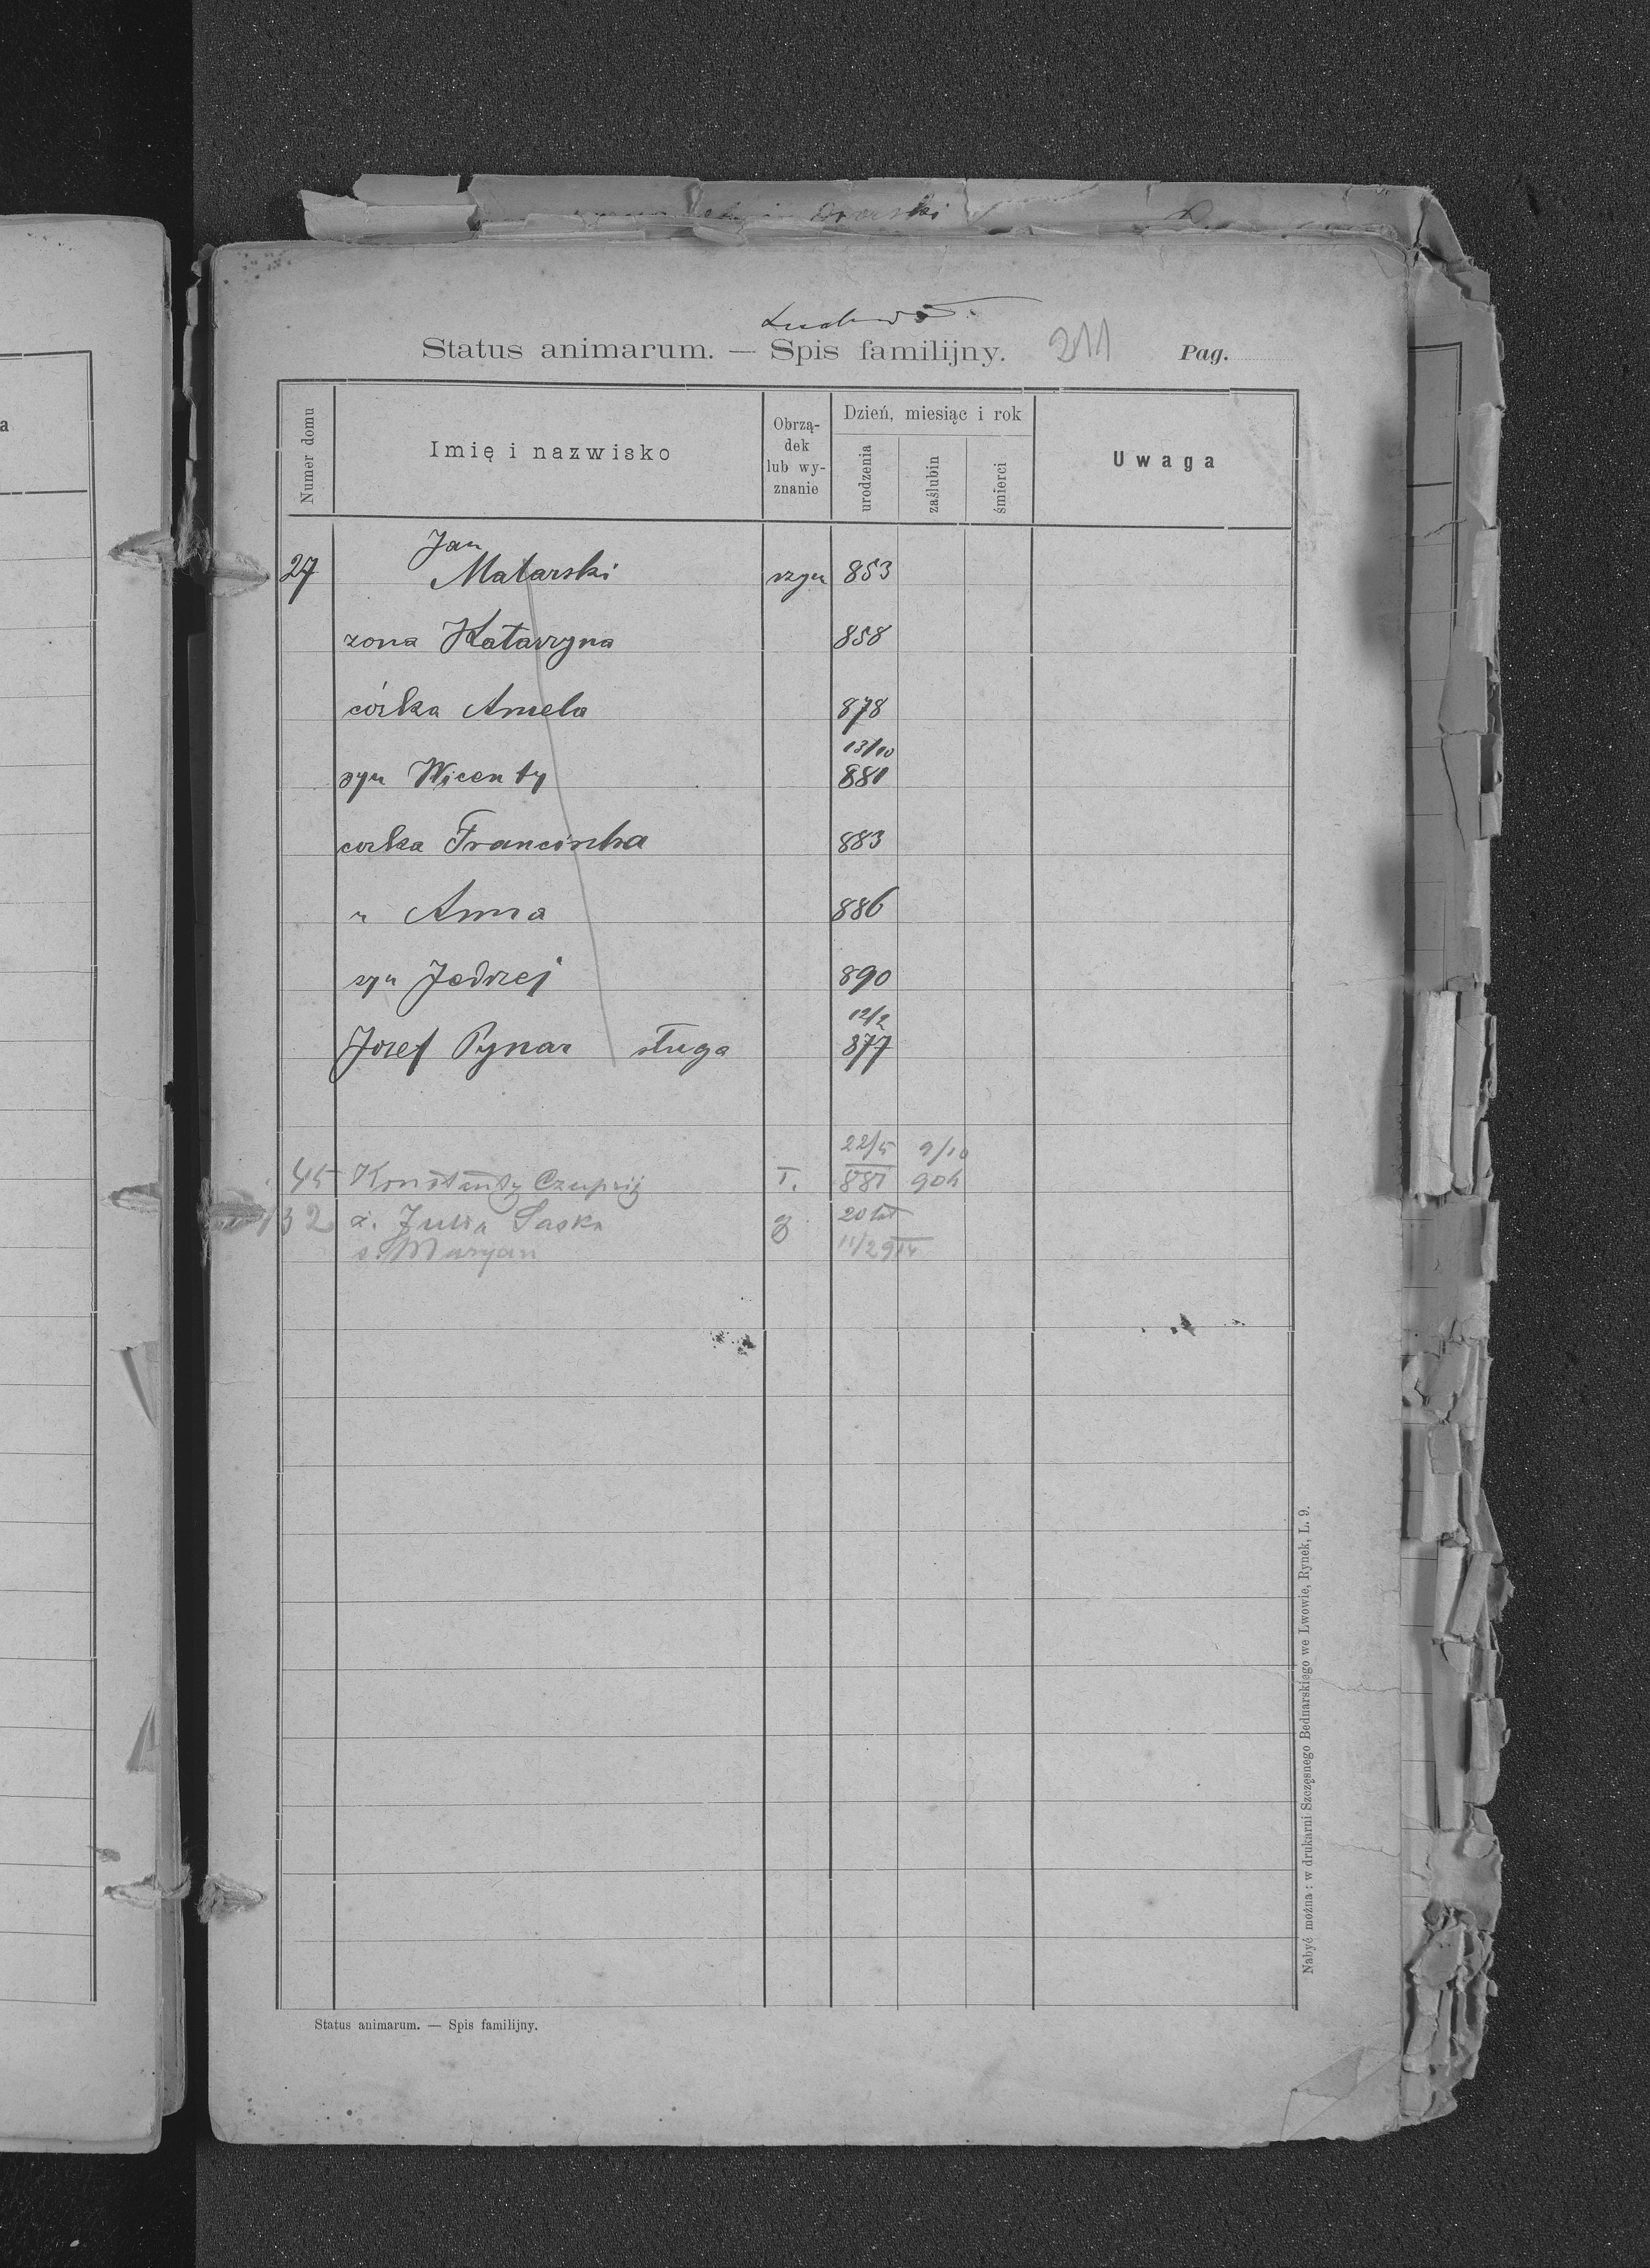 Status animarum. — Spis familijny. 211 Pag.
Numer domu
Imię i nazwisko
Obrządek lub wyznanie
Dzień, miesiąc i rok
urodzenia
zaślubin
śmierci
Uwaga
27 Jan
Matarski rzym 853
zona Katarzyna 858
córka Aniela 878
13/10
syn Wicenty 881
corka Franciszka 883
" Anna 886
syn Jedrzej 890
12/2
Jozef Pynar sługa 877
22/5 9/10
45 Konstanty 881 904
32 ż. Julia Saska g 20 lat
s. Maryan 11/2
Status animarum. — Spis familijny.
Nabyć można : w drukarni Szczęsnego Bednarskiego we Lwowie, Rynek, L. 9.